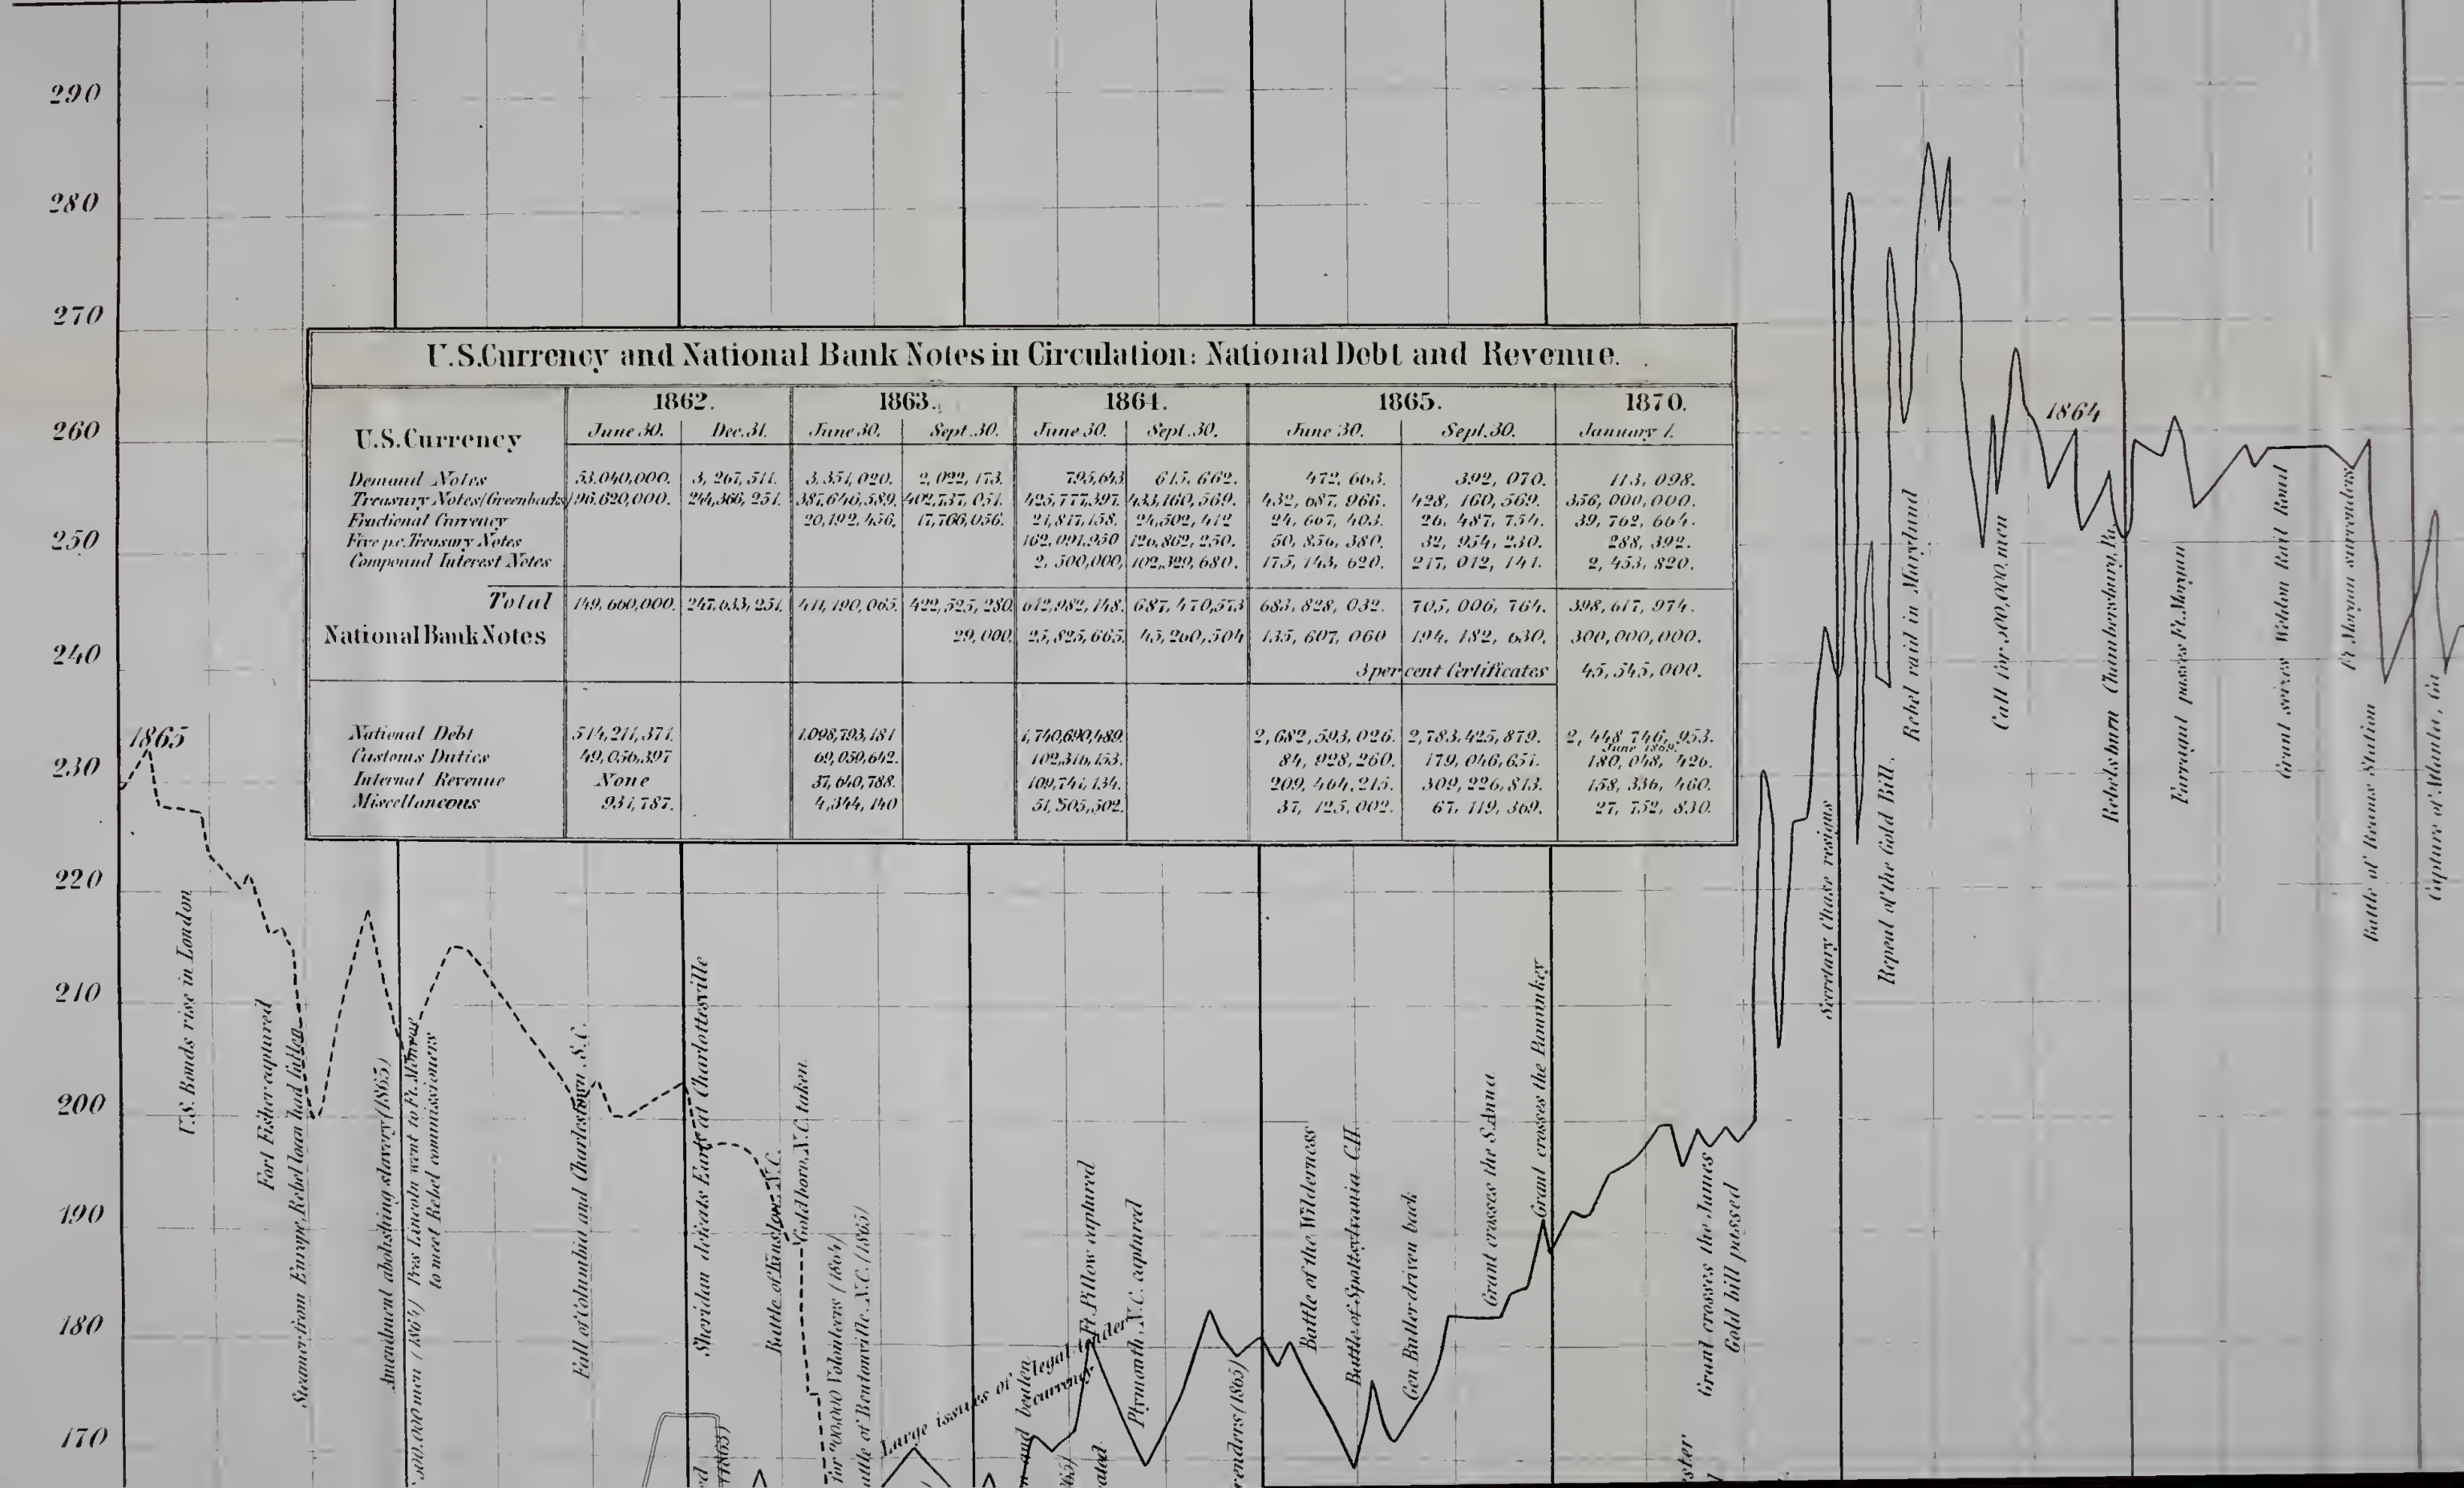 290
280
270
260
250
240
230
220
210
200
190
180
170
U.S.Currency and National Bank Notes in Circulation: National Debt and Revenue.
1862. 1863. 1864. 1865. 1870.
U.S.Currency June 30. Dec.31. June 30. Sept.30. June 30. Sept.30. June 30. Sept.30. January 1.
Demand Notes 53.040,000. 3,267,511. 3,351,020. 2,022,173. 795,643 615,662. 472,663. 392,070. 113,098.
Treasury Notes(Greenbacks) 96.620,000. 244,366,251. 387,646,589. 402,737,051. 425,777,397. 433,160,569. 432,687,966. 428,160,569. 356,000,000.
Fractional Currency 20,192,456. 17,766,056. 21,817,158. 24,502,412 24,667,403. 26,487,754. 39,762,664.
Five p.c.Treasury Notes 162,091,950 126,862,250. 50,856,380. 32,954,230. 288,392.
Compound Interest Notes 2,500,000, 102,329,680. 175,143,620. 217,012,141. 2,453,820.
Total 149,660,000. 247,633,251. 411,190,065. 422,525,280. 612,982,148. 687,470,573 683,828,032. 705,006,764. 398,617,974.
National Bank Notes 29,000. 25,825,665. 45,260,504 135,607,060 194,182,630. 300,000,000.
3 per cent Certificates 45,545,000.
National Debt 514,211,371. 1.098,793,181 1,740,690,489. 2,682,593,026. 2,783,425,879. 2,448,746,953.
June 1869.
Customs Duties 49,056,397 69,059,642. 102,316,153. 84,928,260. 179,046,651. 180,048,426.
Internal Revenue None 37,640,788. 109,741,134. 209,464,215. 309,226,813. 158,336,460.
Miscellaneous 931,787. 4,344,140 51,505,502. 37,125,002. 67,119,369. 27,752,830.
1865
1864
U.S. Bonds rise in London
Fort Fisher captured
Steamer from Europe, Rebel loan had fallen
Amendment abolishing slavery (1865)
500.000 men (1864) Pres Lincoln went to Ft. Monroe
to meet Rebel commissioners
Fall of Columbia and Charlestown S.C.
Sheridan defeats Early at Charlottesville
(1865)
Battle of Kinston, N.C.
Goldboro, N.C. taken
for 200,000 Volonteers (1864)
Battle of Bentonville, N.C. (1865)
Large issues of legal tender
currency
and beaten
Ft. Pillow captured
Plymouth, N.C. captured
(1865)
Battle of the Wilderness
Battle of Spotsylvania C.H.
Gen Butler driven back
Grant crosses the S.Anna
Grant crosses the Pamunkey
Grant crosses the James
Gold bill passed
Secretary Chase resigns
Repeal of the Gold Bill.
Rebel raid in Maryland
Call for 500,000 men
Rebels burn Chambersburg, Pa.
Farragut passes Ft.Morgan
Grant seizes Weldon Rail Road
Ft. Morgan surrenders
Battle of Reams Station
Capture of Atlanta, Ga